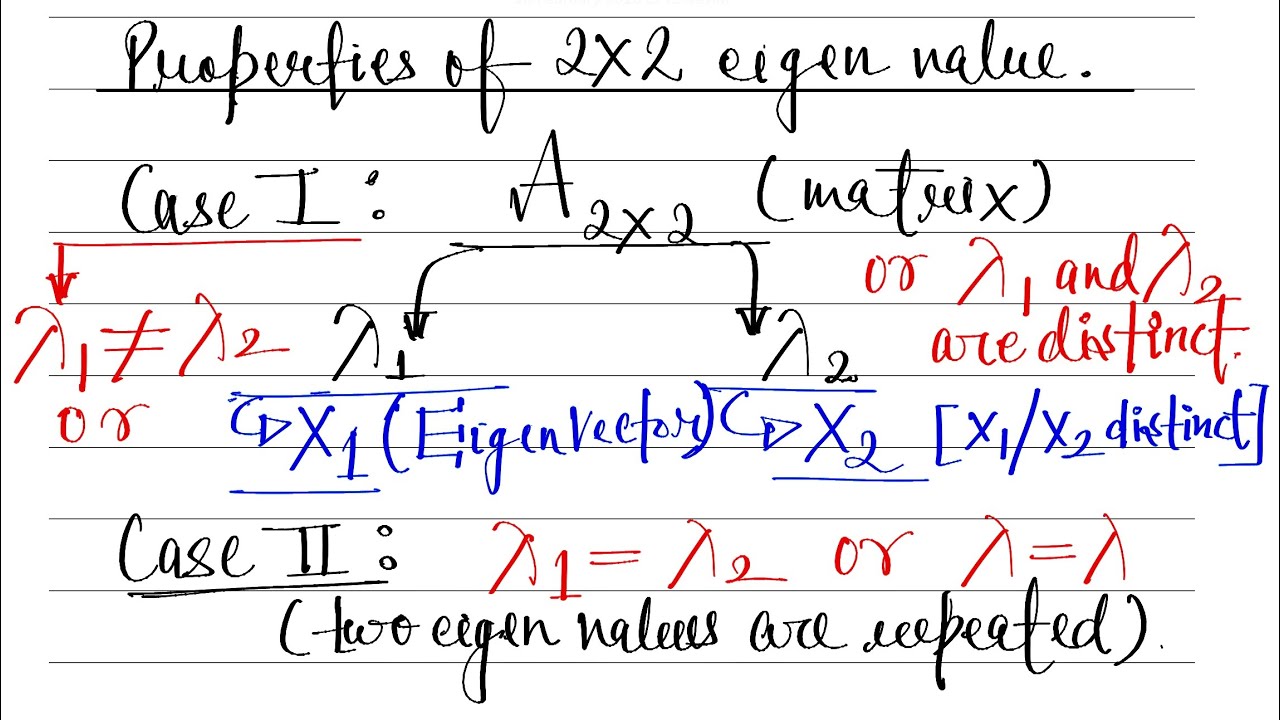 Properties of 2x2 eigen value.
Case I : A2x2 (matrix)
or λ1 and λ2
are distinct.
λ1 ≠ λ2 λ1 λ2
or
↪ X1 (Eigen Vector) ↪ X2 [X1/X2 distinct]
Case II : λ1 = λ2 or λ = λ
(two eigen values are repeated).